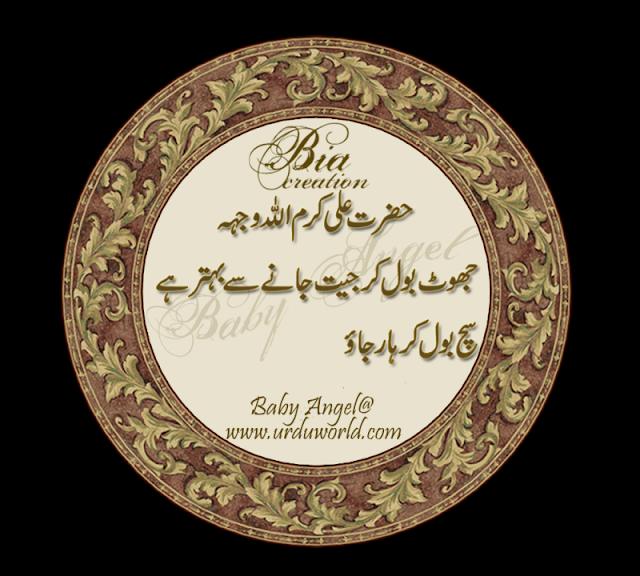 Bia
creation
حضرت علی کرم اللہ وجہہ
جھوٹ بول کر جیت جانے سے بہتر ہے
سچ بول کر ہار جاؤ
Baby Angel
Baby Angel@
www.urduworld.com